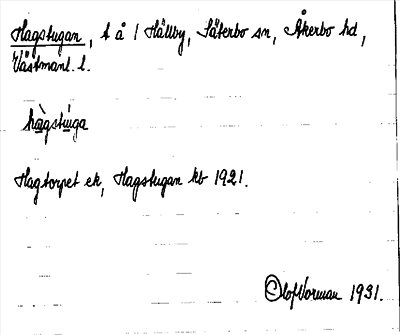 Hagstugan, t å 1 Hällby, Säterbo sn, Åkerbo hd,
Västmanl. l.
hàgstùga
Hagtorpet ek, Hagstugan kb 1921.
Olof Norman 1931.